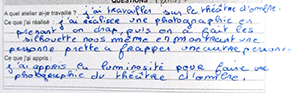 QUESTIONS
A quel atelier ai-je travaillé ? j'ai travailler sur le théâtre d'ombre.
Ce que j'ai réalisé : j'ai réalisée une photographie en
prenant un drap, puis on a fait les
silhouette nous même en montrant une
personne prette a frapper une autre personne.
Ce que j'ai appris :
j'ai appris la luminosité pour faire une
photographie du théâtre d'ombre.